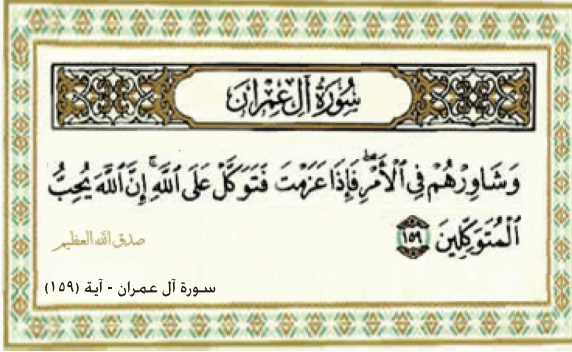 سُورَةُ آلِ عِمْرَانَ
وَشَاوِرْهُمْ فِي ٱلْأَمْرِۖ فَإِذَا عَزَمْتَ فَتَوَكَّلْ عَلَى ٱللَّهِۚ إِنَّ ٱللَّهَ يُحِبُّ
ٱلْمُتَوَكِّلِينَ ١٥٩
صدق الله العظيم
سورة آل عمران - آية (١٥٩)